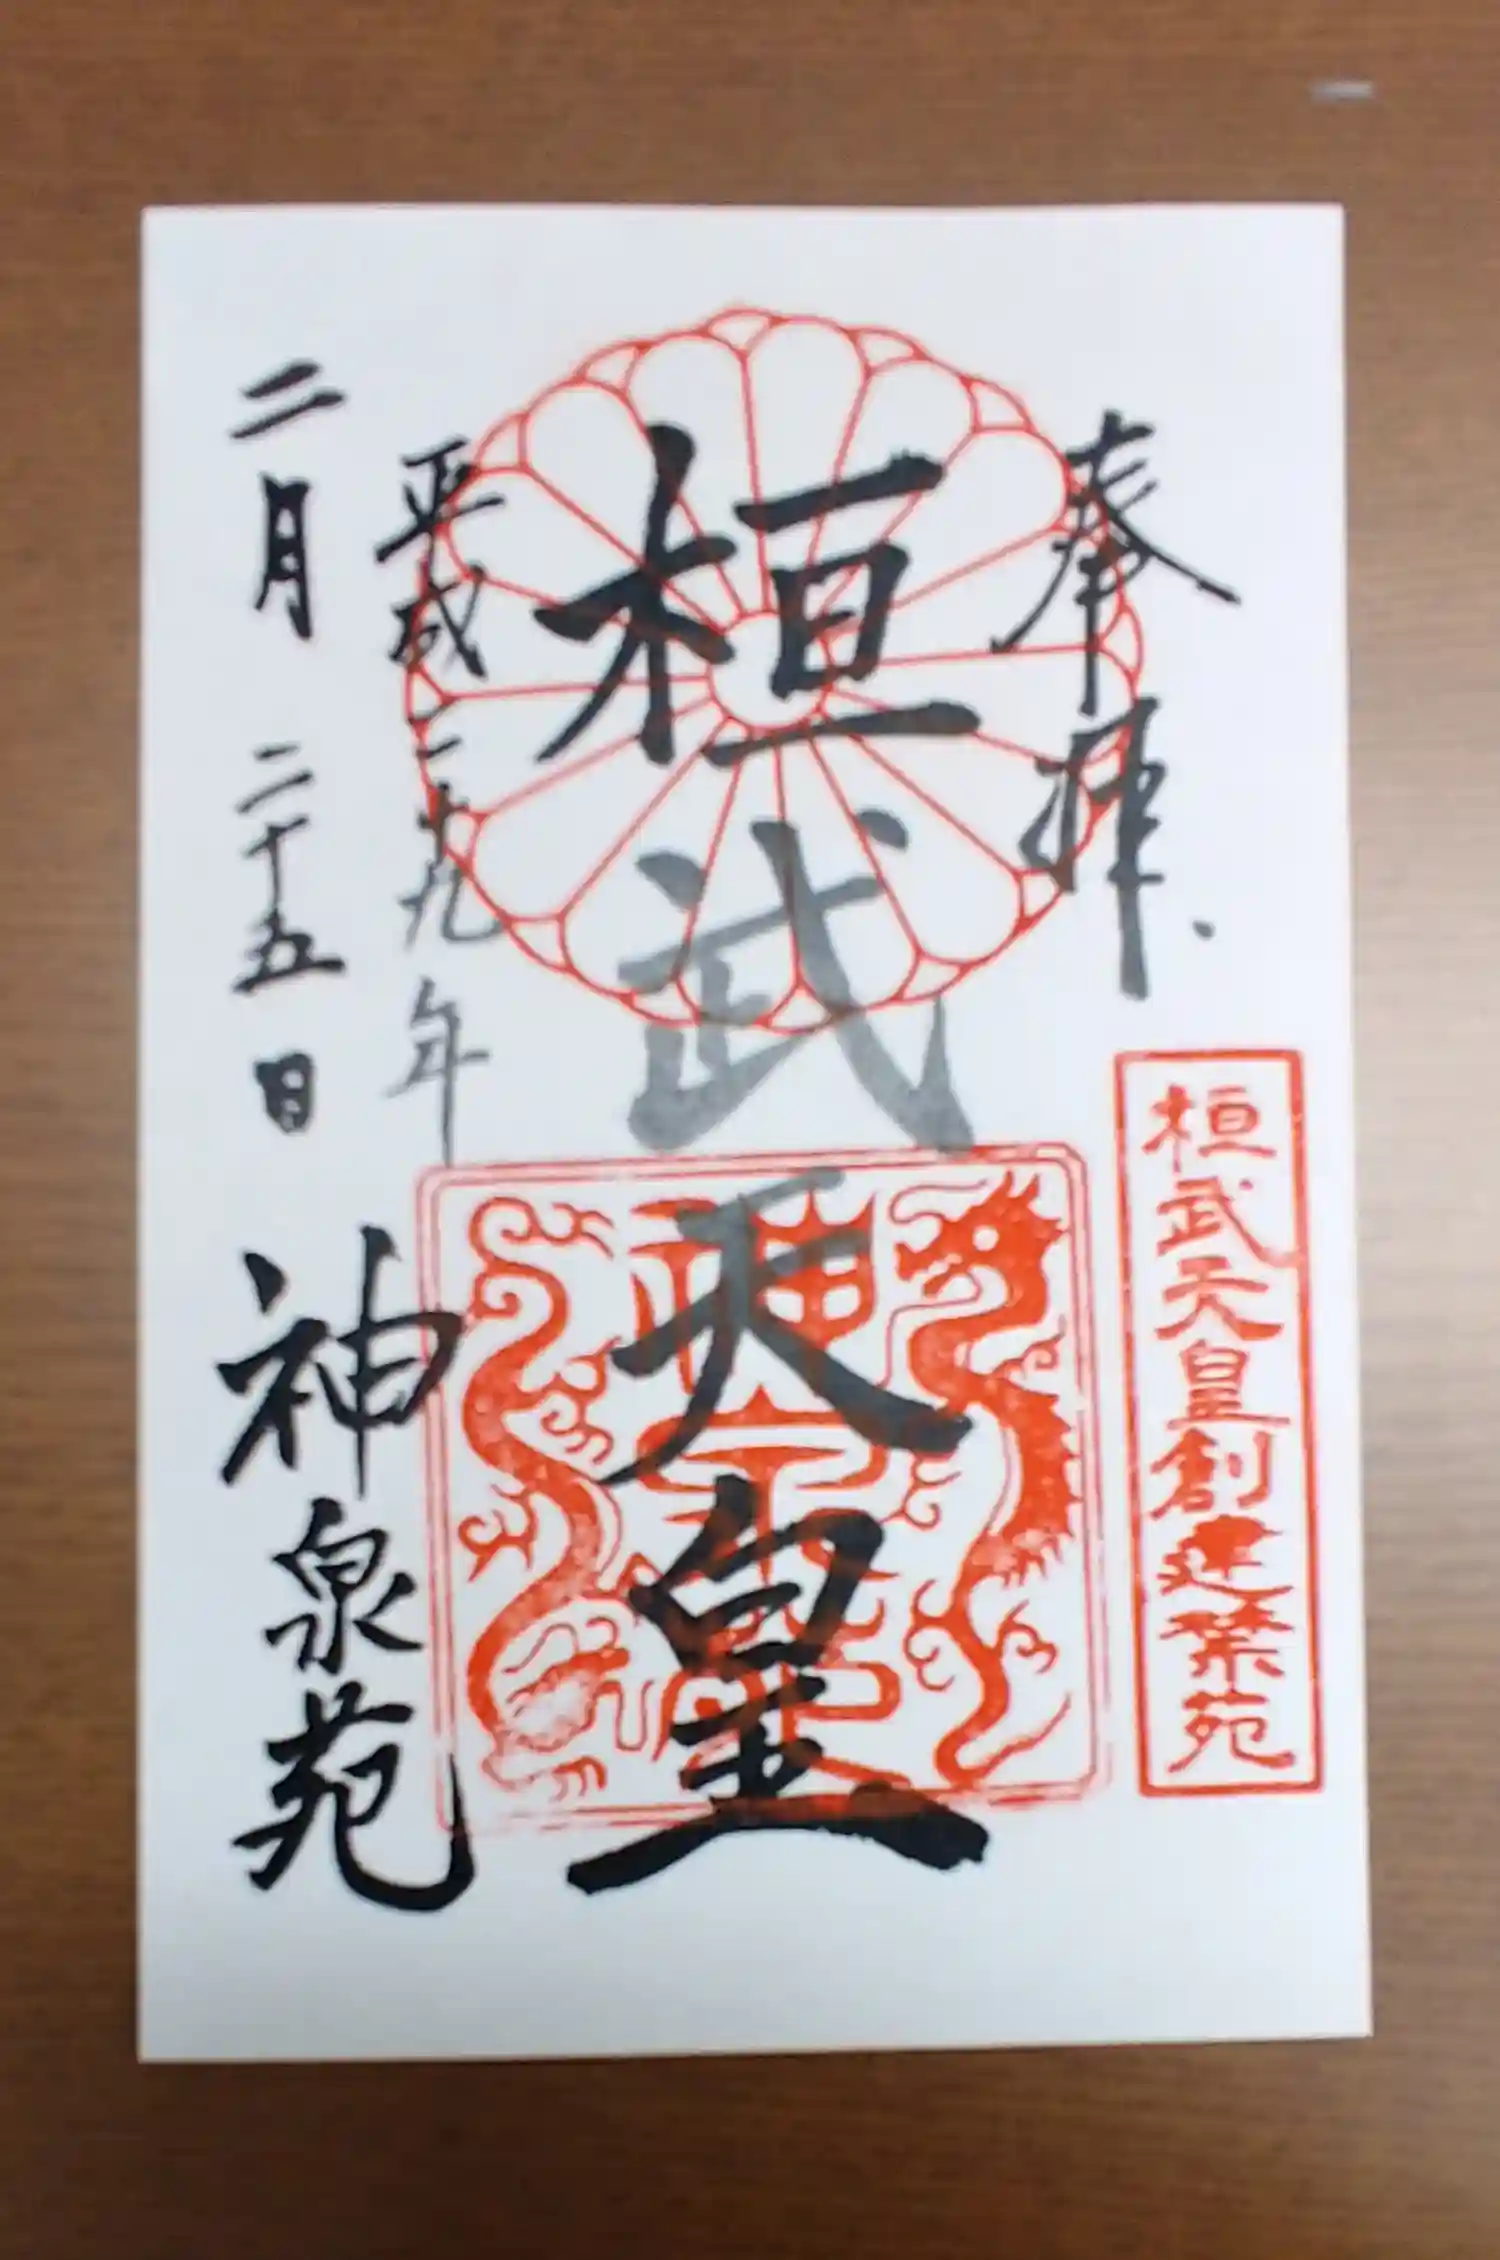 奉拝
桓武天皇創建禁苑
桓武天皇
平成二十九年
二月二十五日
神泉苑